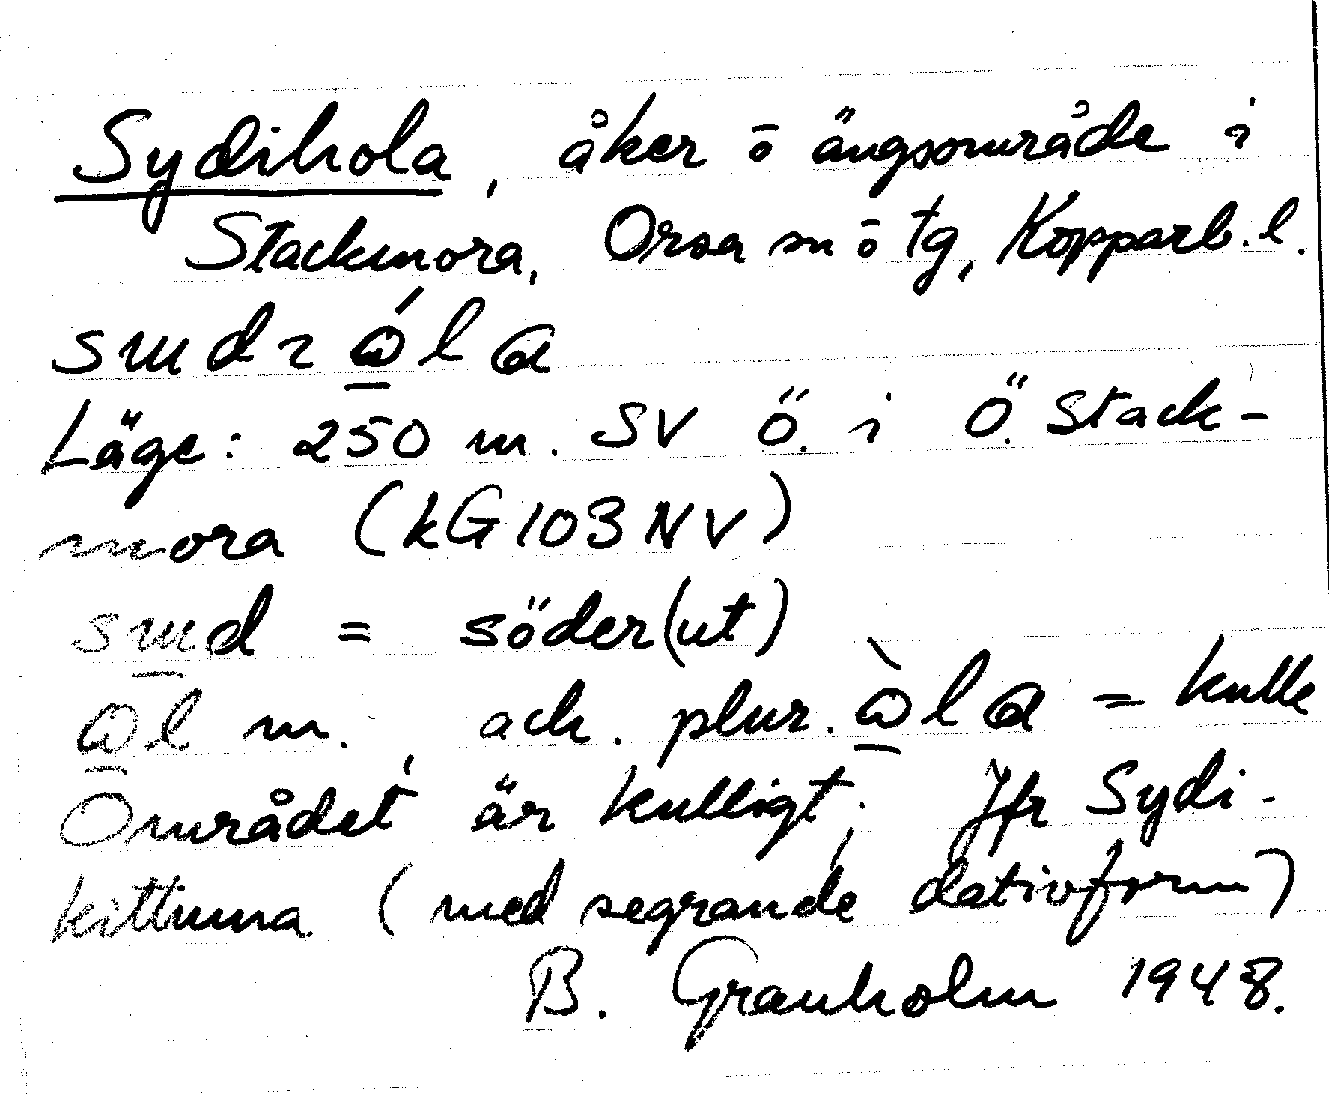 Sydihola, åker ō ängsområde i
Stackmora, Orsa sn ō tg, Kopparb. l.
Läge: 250 m. SV Ö. i Ö. Stack-
mora (kG 103 NV)
= söder(ut)
m., ack. plur. = kulle
Området är kulligt. Jfr Sydi-
kittuna (med segrande dativform)
B. Granholm 1948.